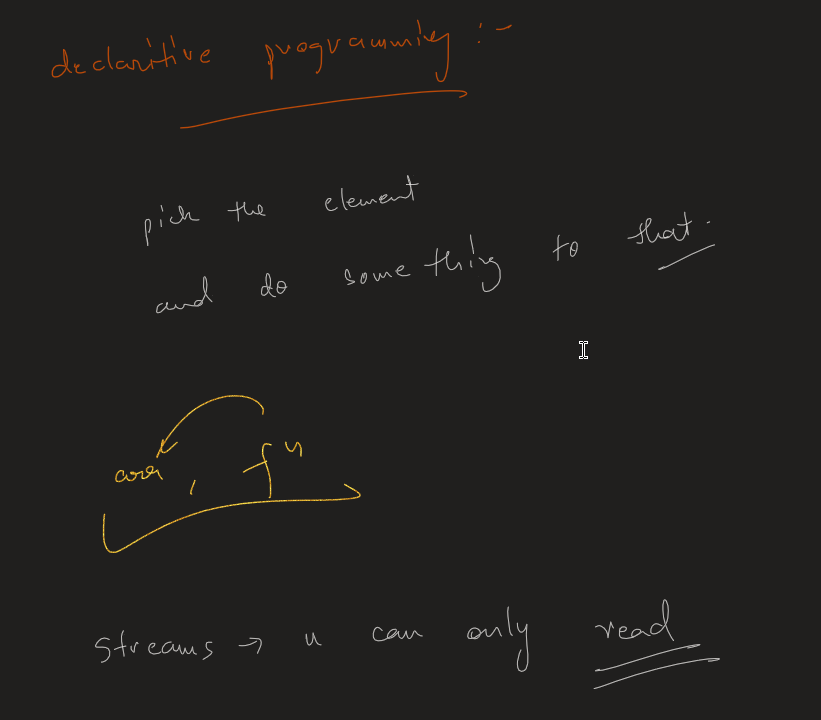 declaritive programming :-
pick the element
and do something to that.
arr, fⁿ
Streams → u can only read